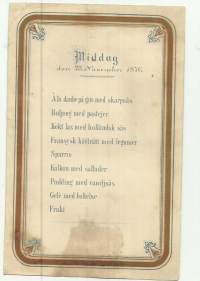 Middag
den 23 November 1876.
À la daube på gås med skarpsås
Buljong med pastejer
Kokt lax med holländsk sås
Fransysk kötträtt med legumer
Sparris
Kalkon med sallader
Pudding med vaniljsås
Gelé med bakelse
Frukt